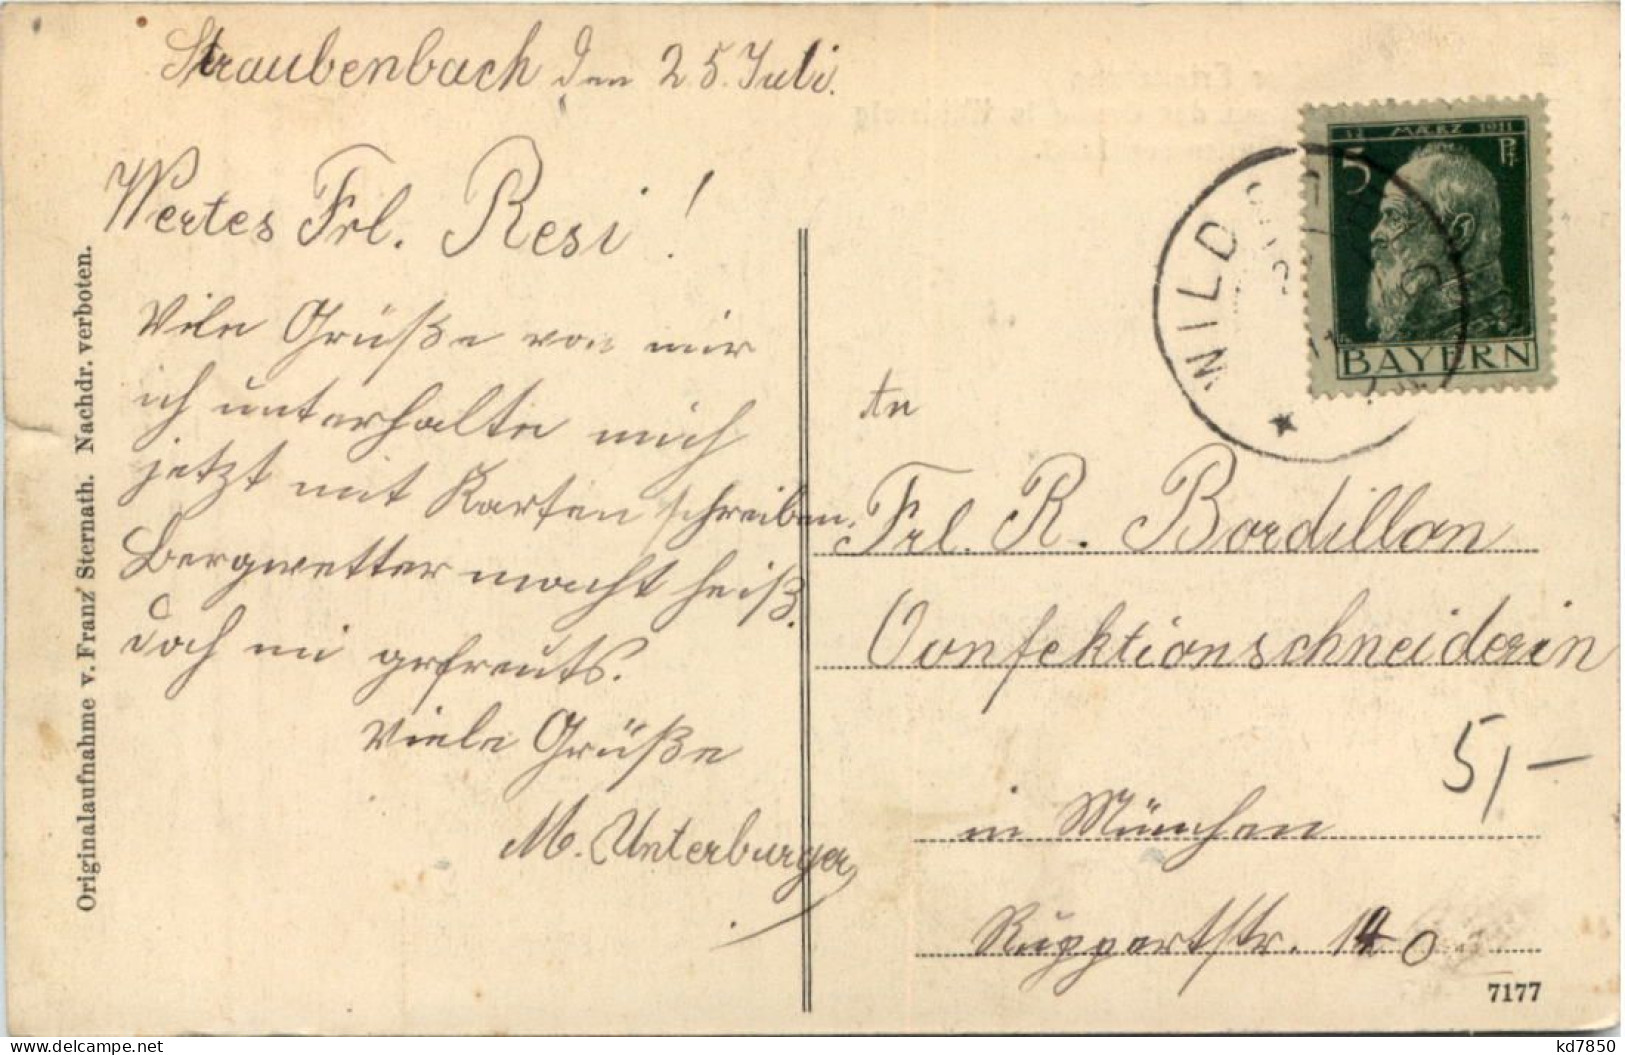 Straubenbach den 25. Juli.
Wertes Frl. Resi!
Viele Grüße von mir
ich unterhalte mich
jetzt mit Karten schreiben.
Bergwetter macht heiß.
doch mi gefreuts.
Viele Grüße
M. Unterburger
Originalaufnahme v. Franz Sternath. Nachdr. verboten.
12 MÆRZ 1911
5 Pf.
BAYERN
WILD
An
Frl. R. Bordillon
Confektionschneiderin
5,-
in München
Ruppertstr.
7177
www.delcampe.net
kd7850